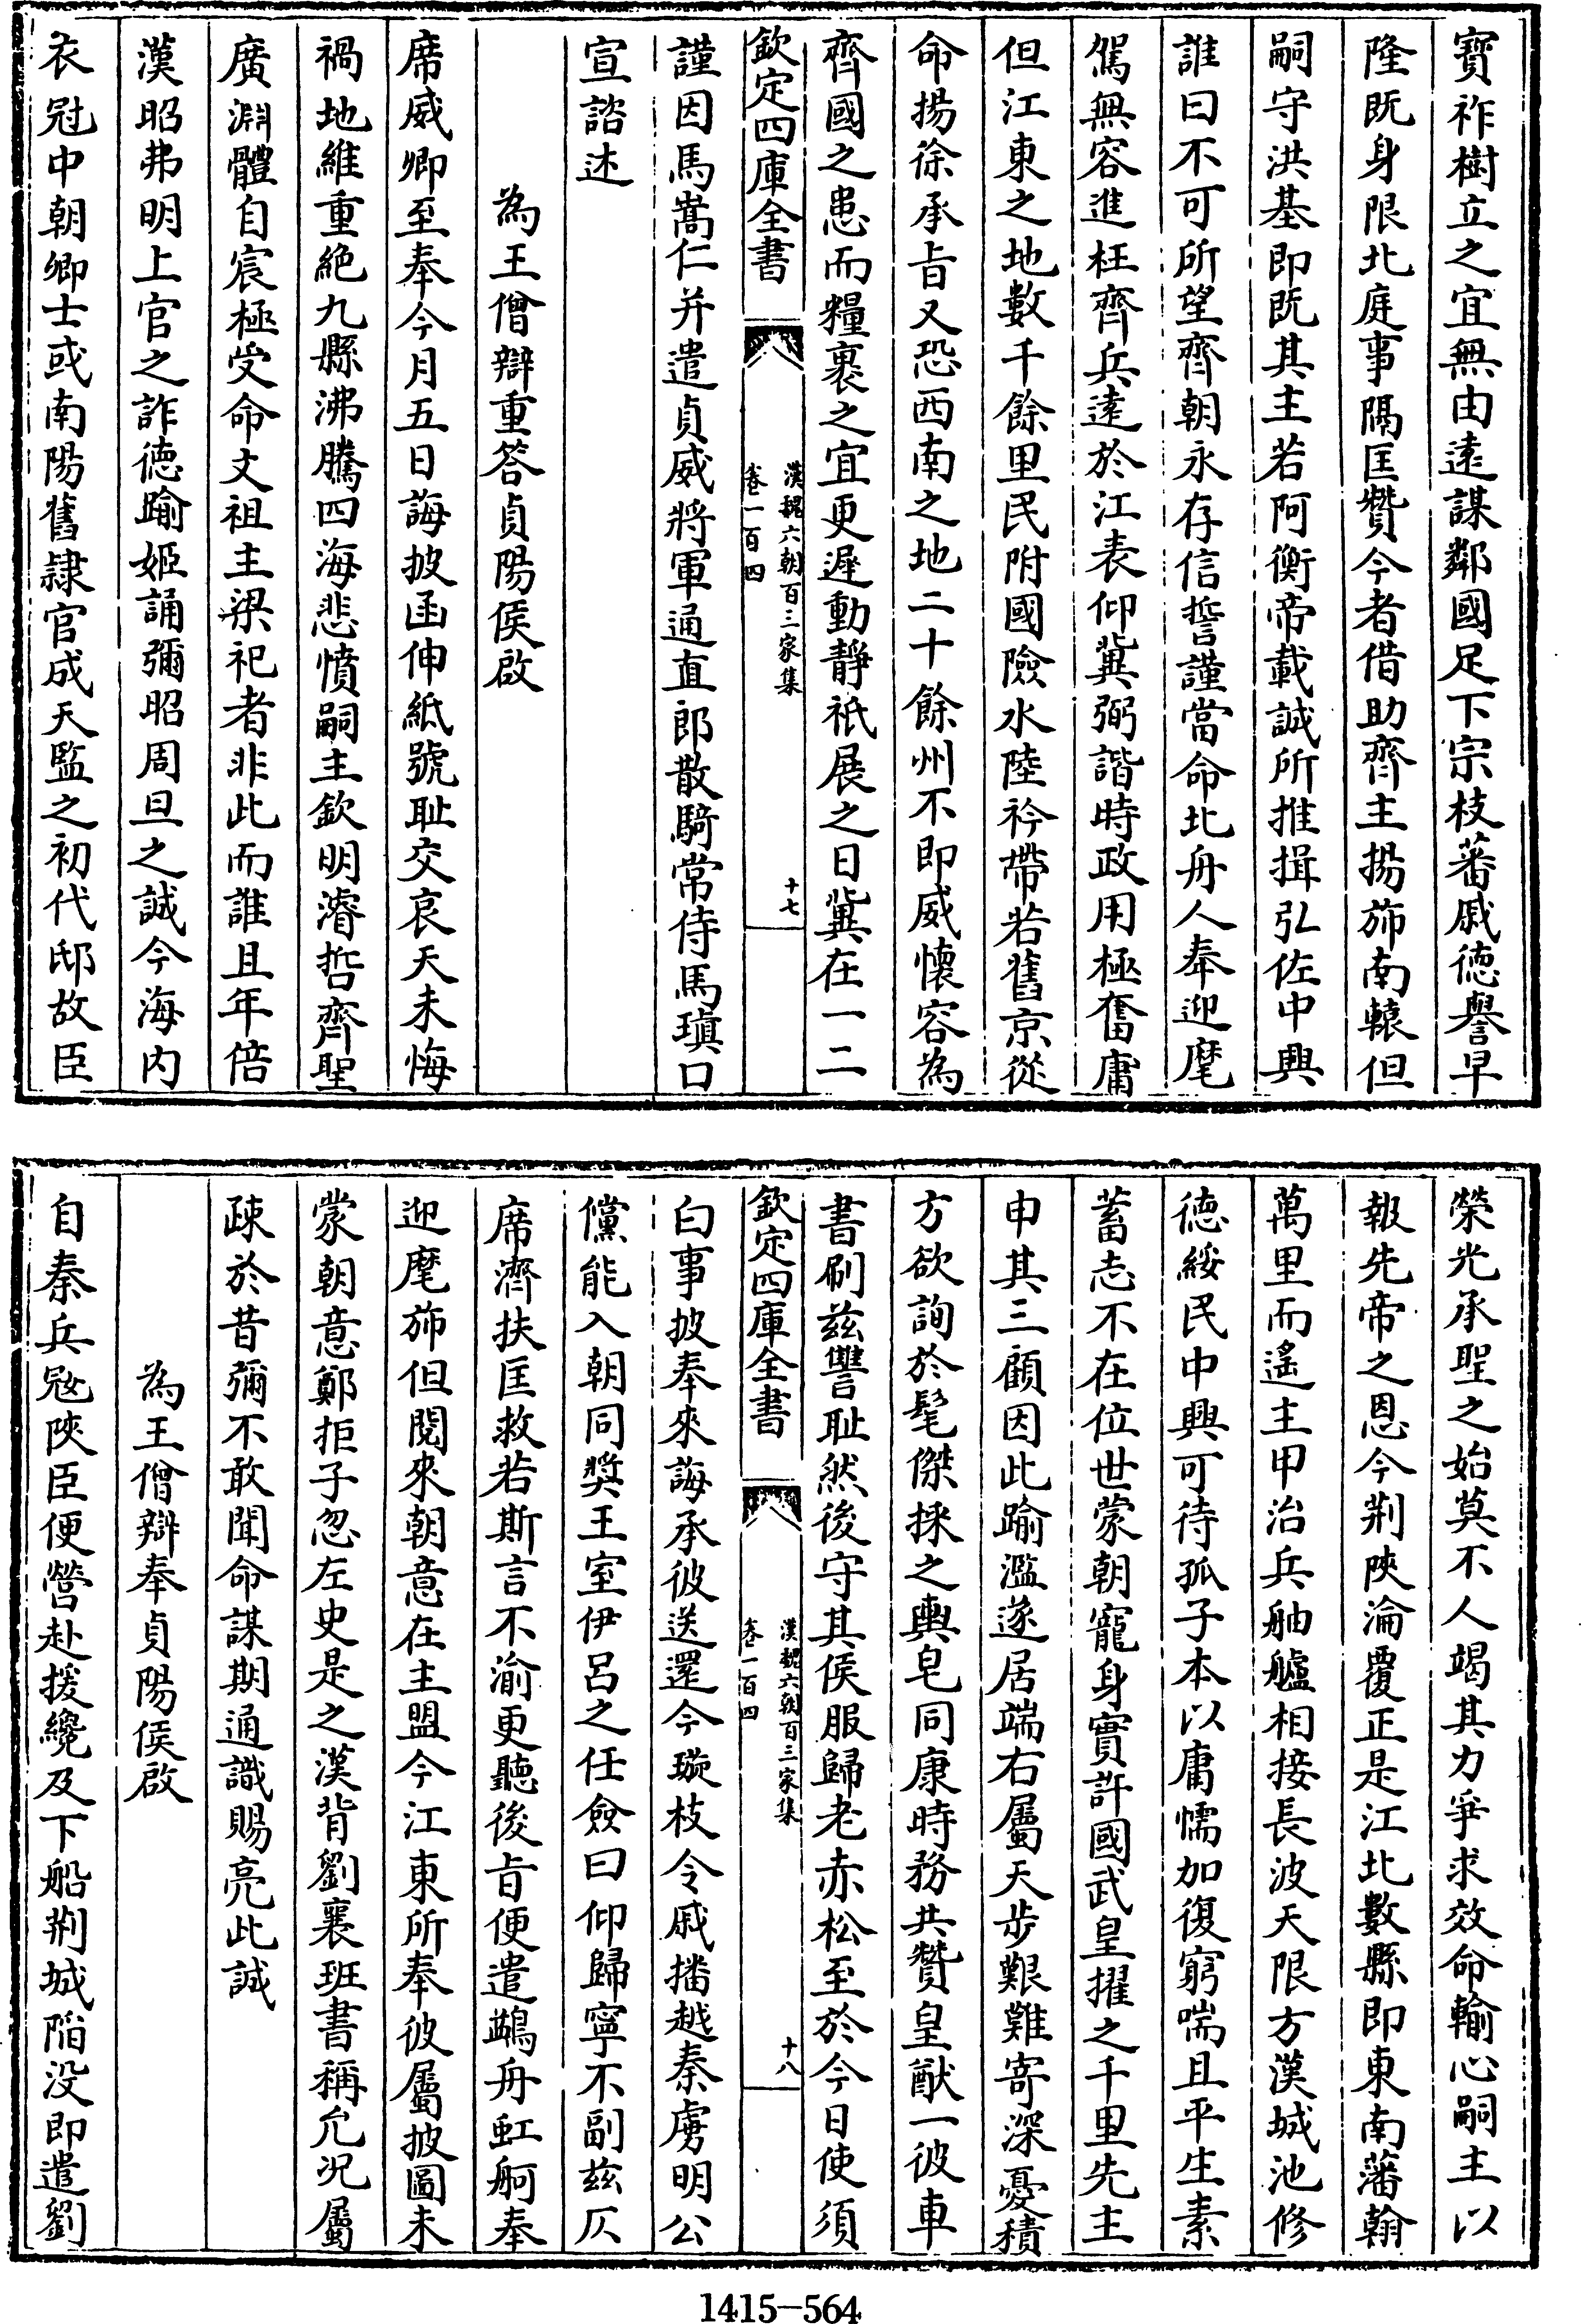 寶祚樹立之宜無由遠謀鄰國足下宗枝蕃戚徳譽早
隆既身限北庭事隔匡贊今者借助齊主揚斾南轅但
嗣守洪基即既其主若阿衡帝載誠所推揖弘佐中興
誰曰不可所望齊朝永存信誓謹當命北舟人奉迎麾
駕無容進枉齊兵逺於江表仰冀弼諧時政用極奮庸
但江東之地數千餘里民附國險水陸衿帶若舊京從
命揚徐承㫖又恐西南之地二十餘州不即威懷容為
齊國之患而糧裹之宜更遲動靜祇展之日冀在一二
欽定四庫全書
漢魏六朝百三家集
卷一百四
十七
謹因馬嵩仁并遣貞威將軍通直郎散騎常侍馬瑱口
宣諮述
為王僧辯重答貞陽侯啟
席威卿至奉今月五日誨披函伸紙號耻交哀天未悔
禍地維重絶九縣沸騰四海悲憤嗣主欽明濬哲齊聖
廣淵體自宸極受命文祖主梁祀者非此而誰且年倍
漢昭弗明上官之詐徳踰姬誦彌昭周旦之誠今海内
衣冠中朝卿士或南陽舊隷官成天監之初代邸故臣
榮光承聖之始莫不人竭其力爭求效命輸心嗣主以
報先帝之恩今荆陜淪覆正是江北數縣即東南藩翰
萬里而遙主甲治兵舳艫相接長波天限方漢城池修
徳綏民中興可待孤子本以庸懦加復窮喘且平生素
蓄志不在位世蒙朝寵身實許國武皇擢之千里先主
申其三顧因此踰濫遂居端右屬天步艱難寄深憂積
方欲詢於髦傑採之輿皂同康時務共贊皇猷一彼車
書刷兹讐耻然後守其侯服歸老赤松至於今日使須
欽定四庫全書
漢魏六朝百三家集
卷一百四
十八
白事披奉來誨承彼送還今璇枝令戚播越秦虜明公
儻能入朝同奬王室伊呂之任僉曰仰歸寧不副兹仄
席濟扶匡救若斯言不渝更聽後㫖便遣鷁舟虹舸奉
迎麾斾但閲來朝意在主盟今江東所奉彼屬披圖未
蒙朝意鄭拒子忽左史是之漢背劉襄班書稱允况屬
疎於昔彌不敢聞命謀期通識賜亮此誠
為王僧辯奉貞陽侯啟
自秦兵冦陜臣便營赴援纔及下船荆城陷没即遣劉
1415-564